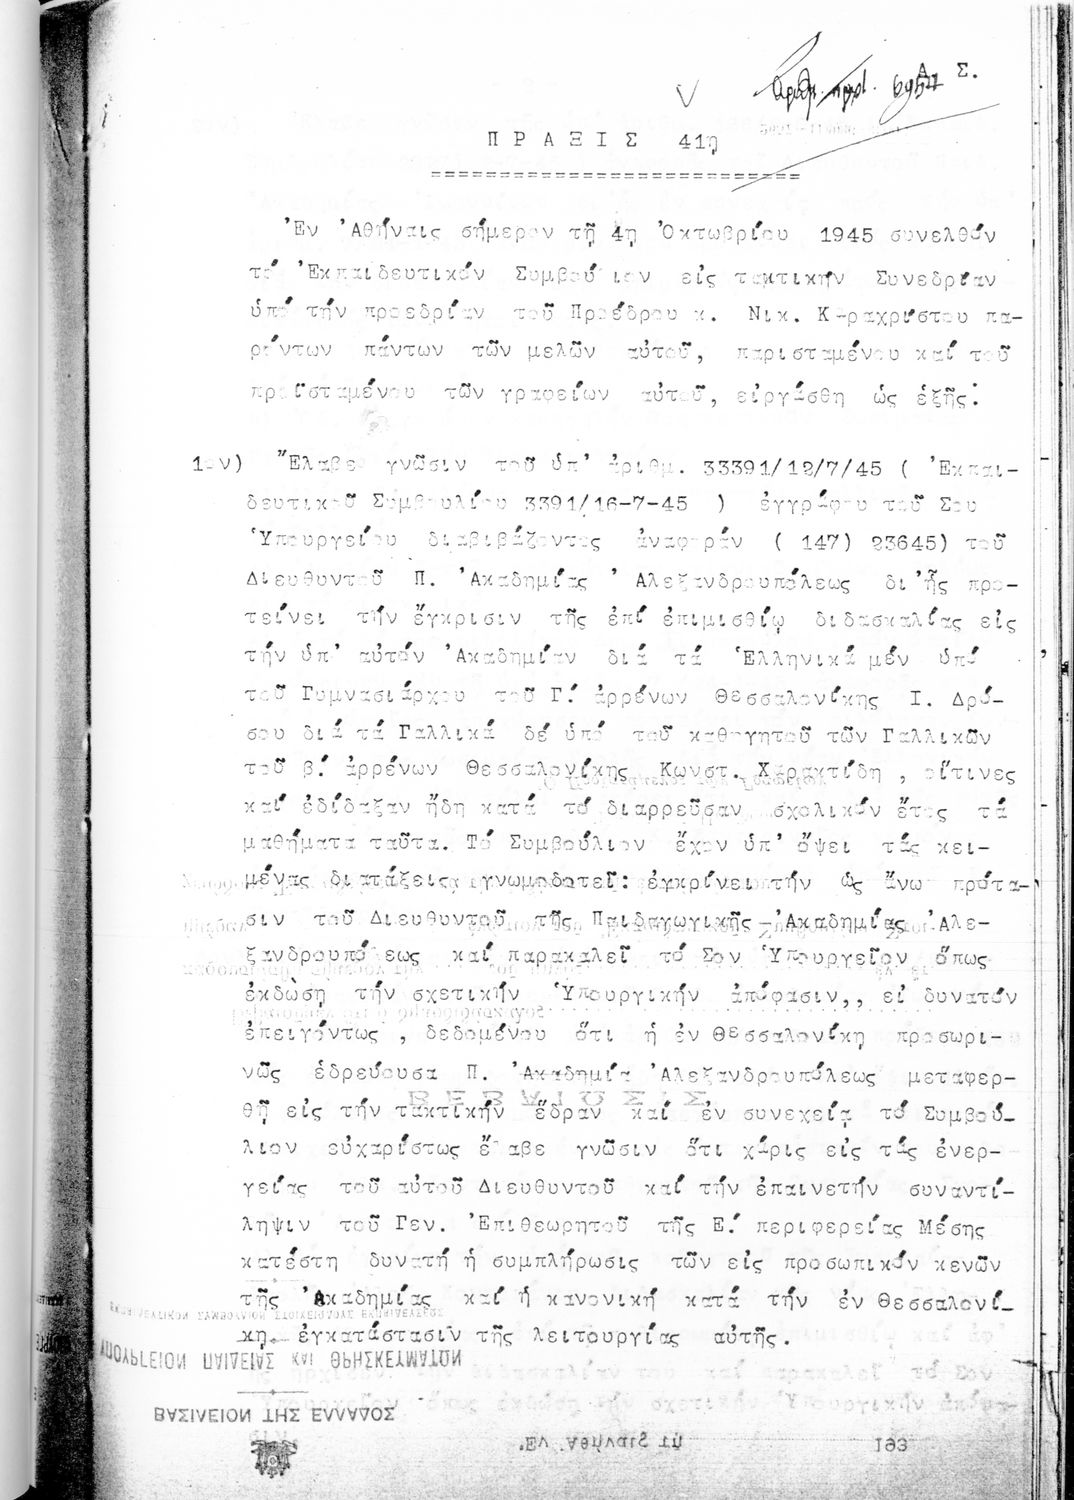 Α Σ.
Π Ρ Α Ξ Ι Σ 41η
Ἐν Ἀθήναις σήμερον τῇ 4η Ὀκτωβρίου 1945 συνελθόν
τό Ἐκπαιδευτικόν Συμβούλιον εἰς τακτικήν Συνεδρίαν
ὑπό τήν προεδρίαν τοῦ Προέδρου κ. Νικ. Καραχρίστου πα-
ρόντων πάντων τῶν μελῶν αὐτοῦ, παρισταμένου καί τοῦ
προϊσταμένου τῶν γραφείων αὐτοῦ, εἰργάσθη ὡς ἑξῆς:
1ον) Ἔλαβε γνῶσιν τοῦ ὑπ' ἀριθμ. 33391/12/7/45 ( Ἐκπαι-
δευτικοῦ Συμβουλίου 3391/16-7-45 ) ἐγγράφου τοῦ Σου
Ὑπουργείου διαβιβάζοντος ἀναφοράν ( 147) 23645) τοῦ
Διευθυντοῦ Π. Ἀκαδημίας Ἀλεξανδρουπόλεως δι' ἧς προ-
τείνει τήν ἔγκρισιν τῆς ἐπί ἐπιμισθίῳ διδασκαλίας εἰς
τήν ὑπ' αὐτόν Ἀκαδημίαν διά τά Ἑλληνικά μέν ὑπό
τοῦ Γυμνασιάρχου τοῦ Γ΄. ἀρρένων Θεσσαλονίκης Ι. Δρό-
σου διά τά Γαλλικά δέ ὑπό τοῦ καθηγητοῦ τῶν Γαλλικῶν
τοῦ β΄. ἀρρένων Θεσσαλονίκης Κωνστ. Χαρακτίδη , οἵτινες
καί ἐδίδαξαν ἤδη κατά τό διαρρεῦσαν σχολικόν ἔτος τά
μαθήματα ταῦτα. Τό Συμβούλιον ἔχον ὑπ' ὄψει τάς κει-
μένας διατάξεις γνωμοδοτεῖ: ἐγκρίνει τήν ὡς ἄνω πρότα-
σιν τοῦ Διευθυντοῦ τῆς Παιδαγωγικῆς Ἀκαδημίας Ἀλε-
ξανδρουπόλεως καί παρακαλεῖ τό Σον Ὑπουργεῖον ὅπως
ἐκδώσῃ τήν σχετικήν Ὑπουργικήν ἀπόφασιν,, εἰ δυνατόν
ἐπειγόντως , δεδομένου ὅτι ἡ ἐν Θεσσαλονίκῃ προσωρι-
νῶς ἑδρεύουσα Π. Ἀκαδημία Ἀλεξανδρουπόλεως μεταφερ-
θῇ εἰς τήν τακτικήν ἕδραν καί ἐν συνεχείᾳ τό Συμβού-
λιον εὐχαρίστως ἔλαβε γνῶσιν ὅτι χάρις εἰς τάς ἐνερ-
γείας τοῦ αὐτοῦ Διευθυντοῦ καί τήν ἐπαινετήν συναντί-
ληψιν τοῦ Γεν. Ἐπιθεωρητοῦ τῆς Ε΄. περιφερείας Μέσης
κατέστη δυνατή ἡ συμπλήρωσις τῶν εἰς προσωπικόν κενῶν
τῆς Ἀκαδημίας καί ἡ κανονική κατά τήν ἐν Θεσσαλονί-
κῃ ἐγκατάστασιν τῆς λειτουργίας αὐτῆς.
ΥΠΟΥΡΓΕΙΟΝ ΠΑΙΔΕΙΑΣ ΚΑΙ ΘΡΗΣΚΕΥΜΑΤΩΝ
ΒΑΣΙΛΕΙΟΝ ΤΗΣ ΕΛΛΑΔΟΣ
Ἐν Ἀθήναις τῇ 193